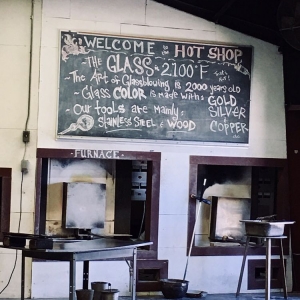 WELCOME TO THE HOT SHOP
-THE GLASS IS 2100°F
-The Art of Glassblowing is 2000 years old
-Glass COLOR is made with: GOLD
SILVER
-Our tools are mainly: & COPPER
STAINLESS STEEL & WOOD
FURNACE